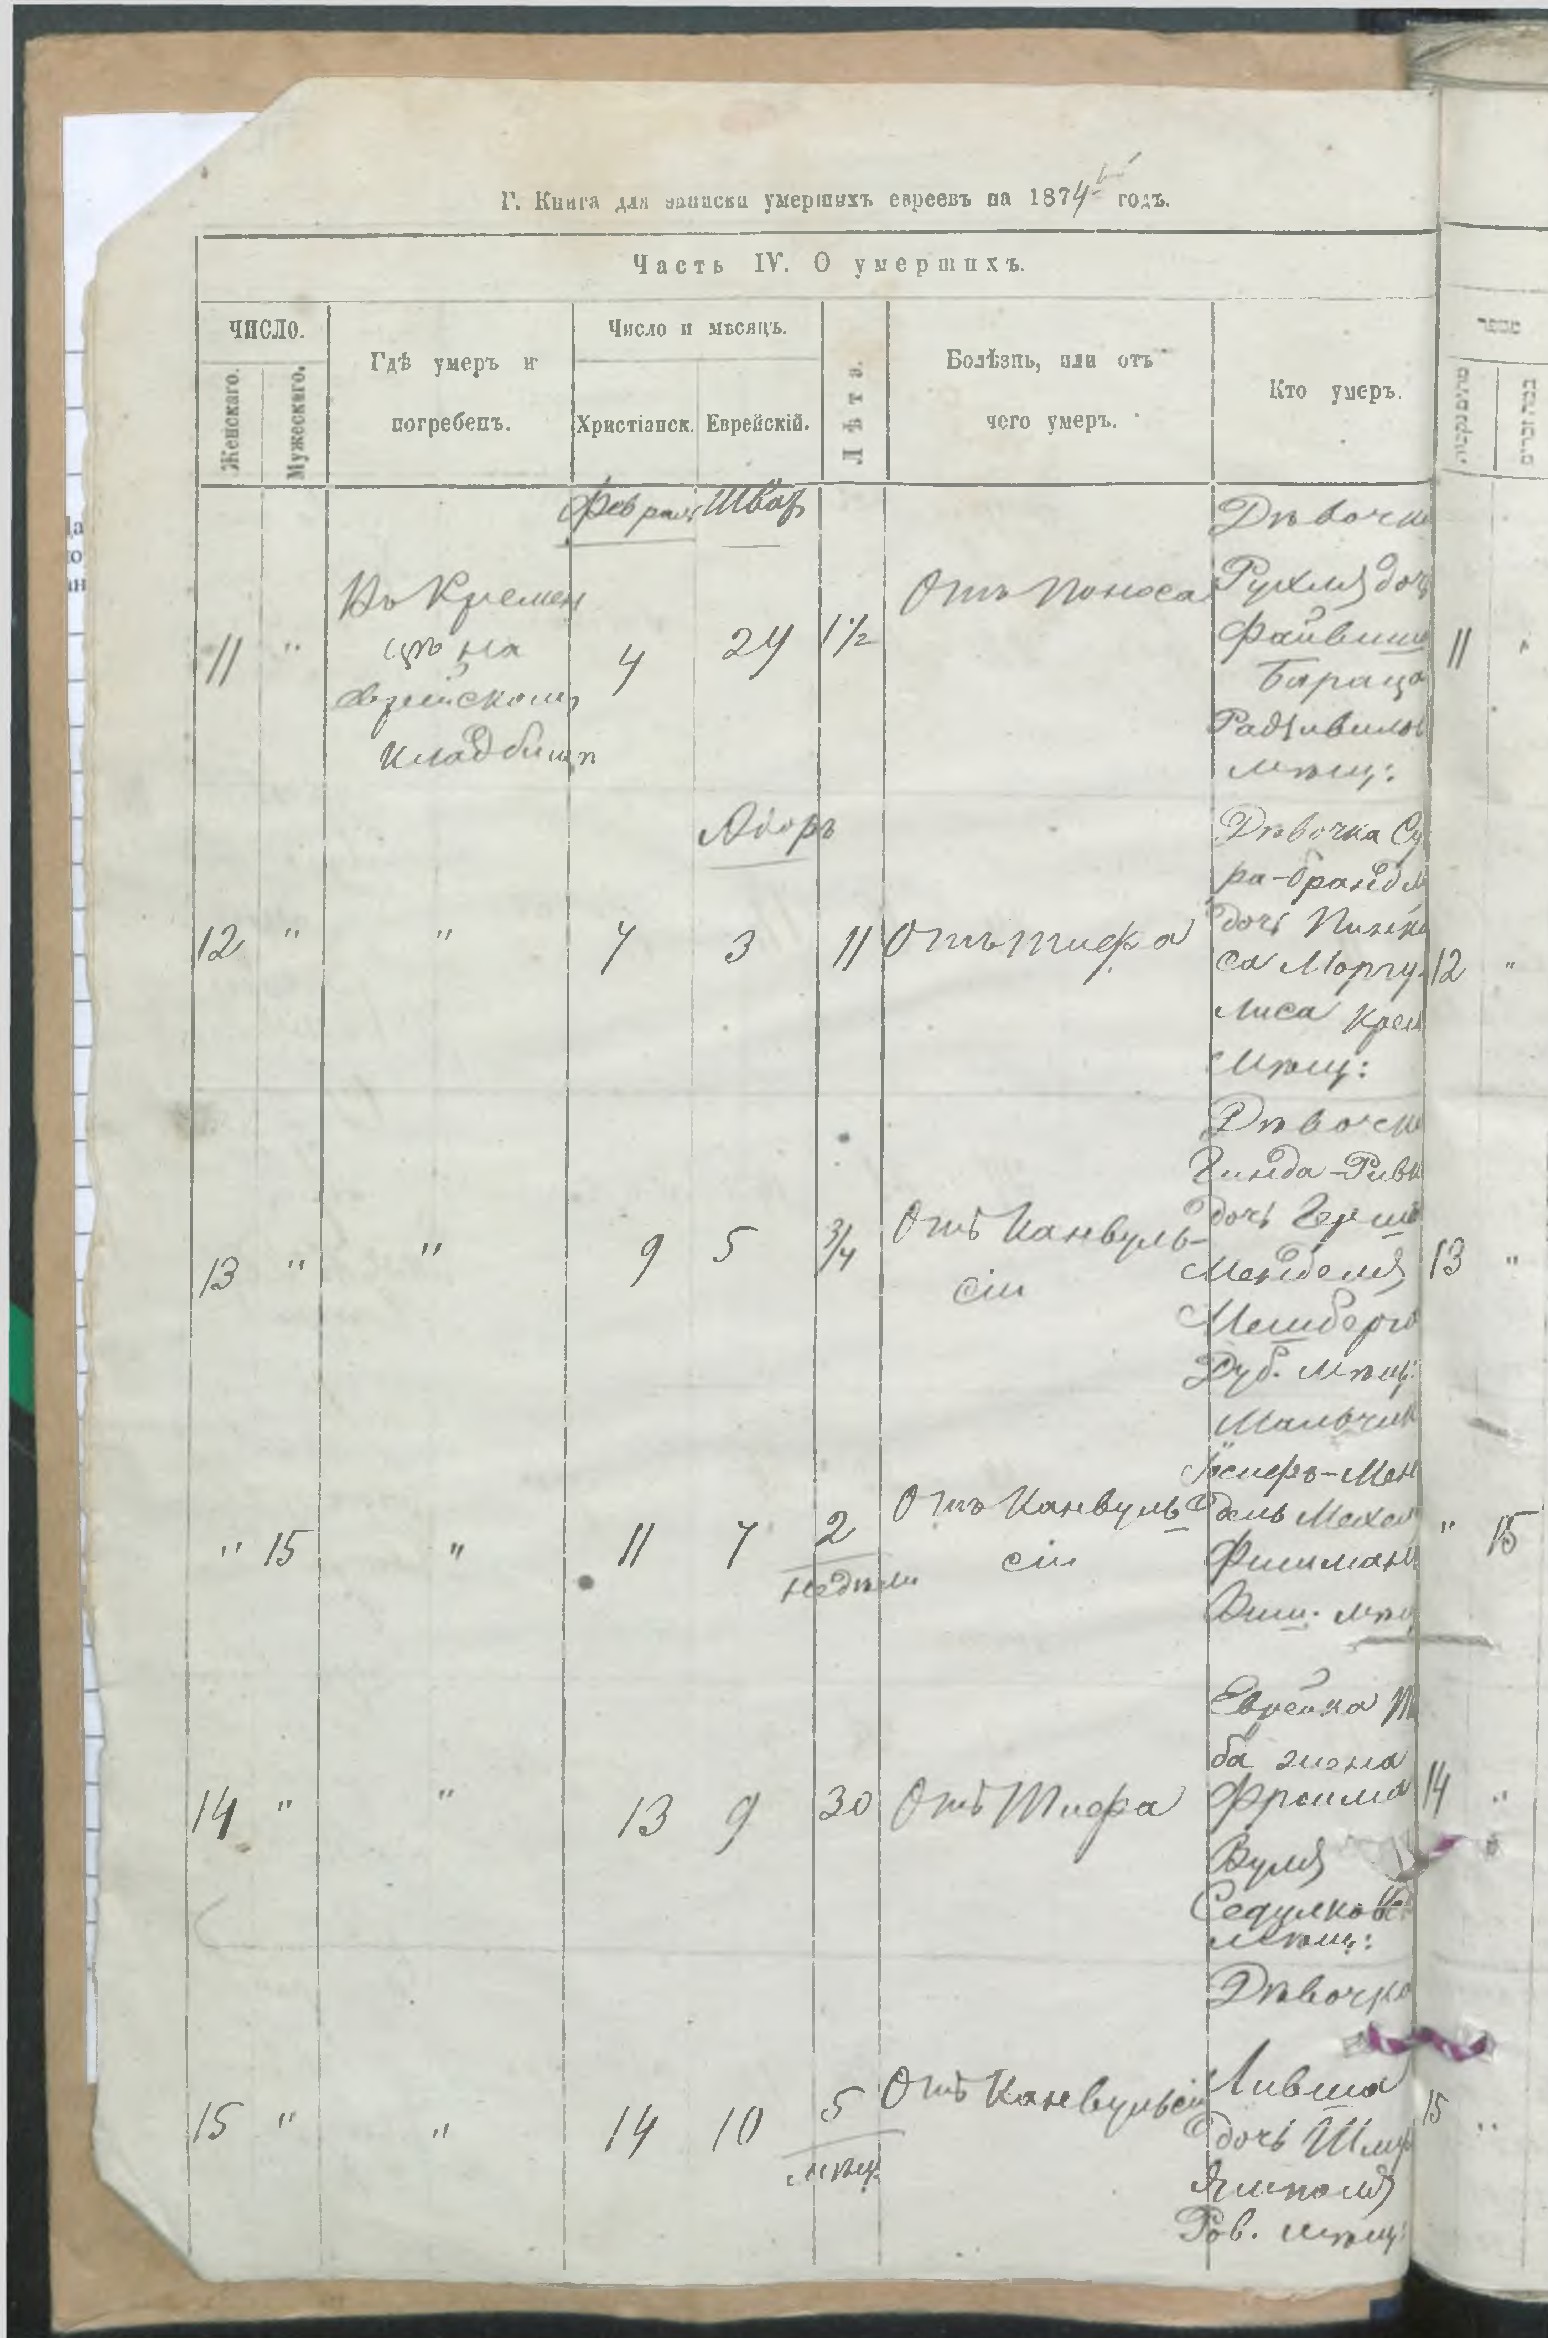 Г. Книга для записки умершихъ евреевъ на 1874й годъ.
Часть IV. О умершихъ.
ЧИСЛО.
Женскаго.
Мужескаго.
Гдѣ умеръ и
погребенъ.
Число и мѣсяцъ.
Христіанск.
Еврейскій.
Лѣта.
Болѣзнь, или отъ
чего умеръ.
Кто умеръ.
מספר
Февраль Шват
11 " Въ Кремен
цѣ на
еврейскомъ
кладбищѣ
4 24 1½ Отъ Поноса
Дѣвочка
Рухля дочь
Файвиша
Бараца
Радзивилов
мѣщ:
11 "
Адоръ
12 " " 7 3 11 Отъ тифа
Дѣвочка Су
ра-Брандля
дочь Пинка
са Маргу-
лиса Крем
мѣщ:
12 "
13 " " 9 5 ¾ Отъ Канвуль-
сіи
Дѣвочка
Гинда-Ривк
дочь Герша
Менделя
Мешберга
Дуб. мѣщ:
13 "
" 15 " 11 7 2
недѣли
Отъ Канвуль
сіи
Мальчик
Іосифъ-Мен
дель Мехел
Фишман
Виш. мѣщ
" 15
14 " " 13 9 30 Отъ Тифа
Еврейка
ба жена
Фроима
Вуля
мѣщ:
14 "
15 " " 14 10 5
мѣц.
Отъ Канвульсіи
Дѣвочка
Ливша
дочь Шму
Ямполя
Ров. мѣщ:
15 "